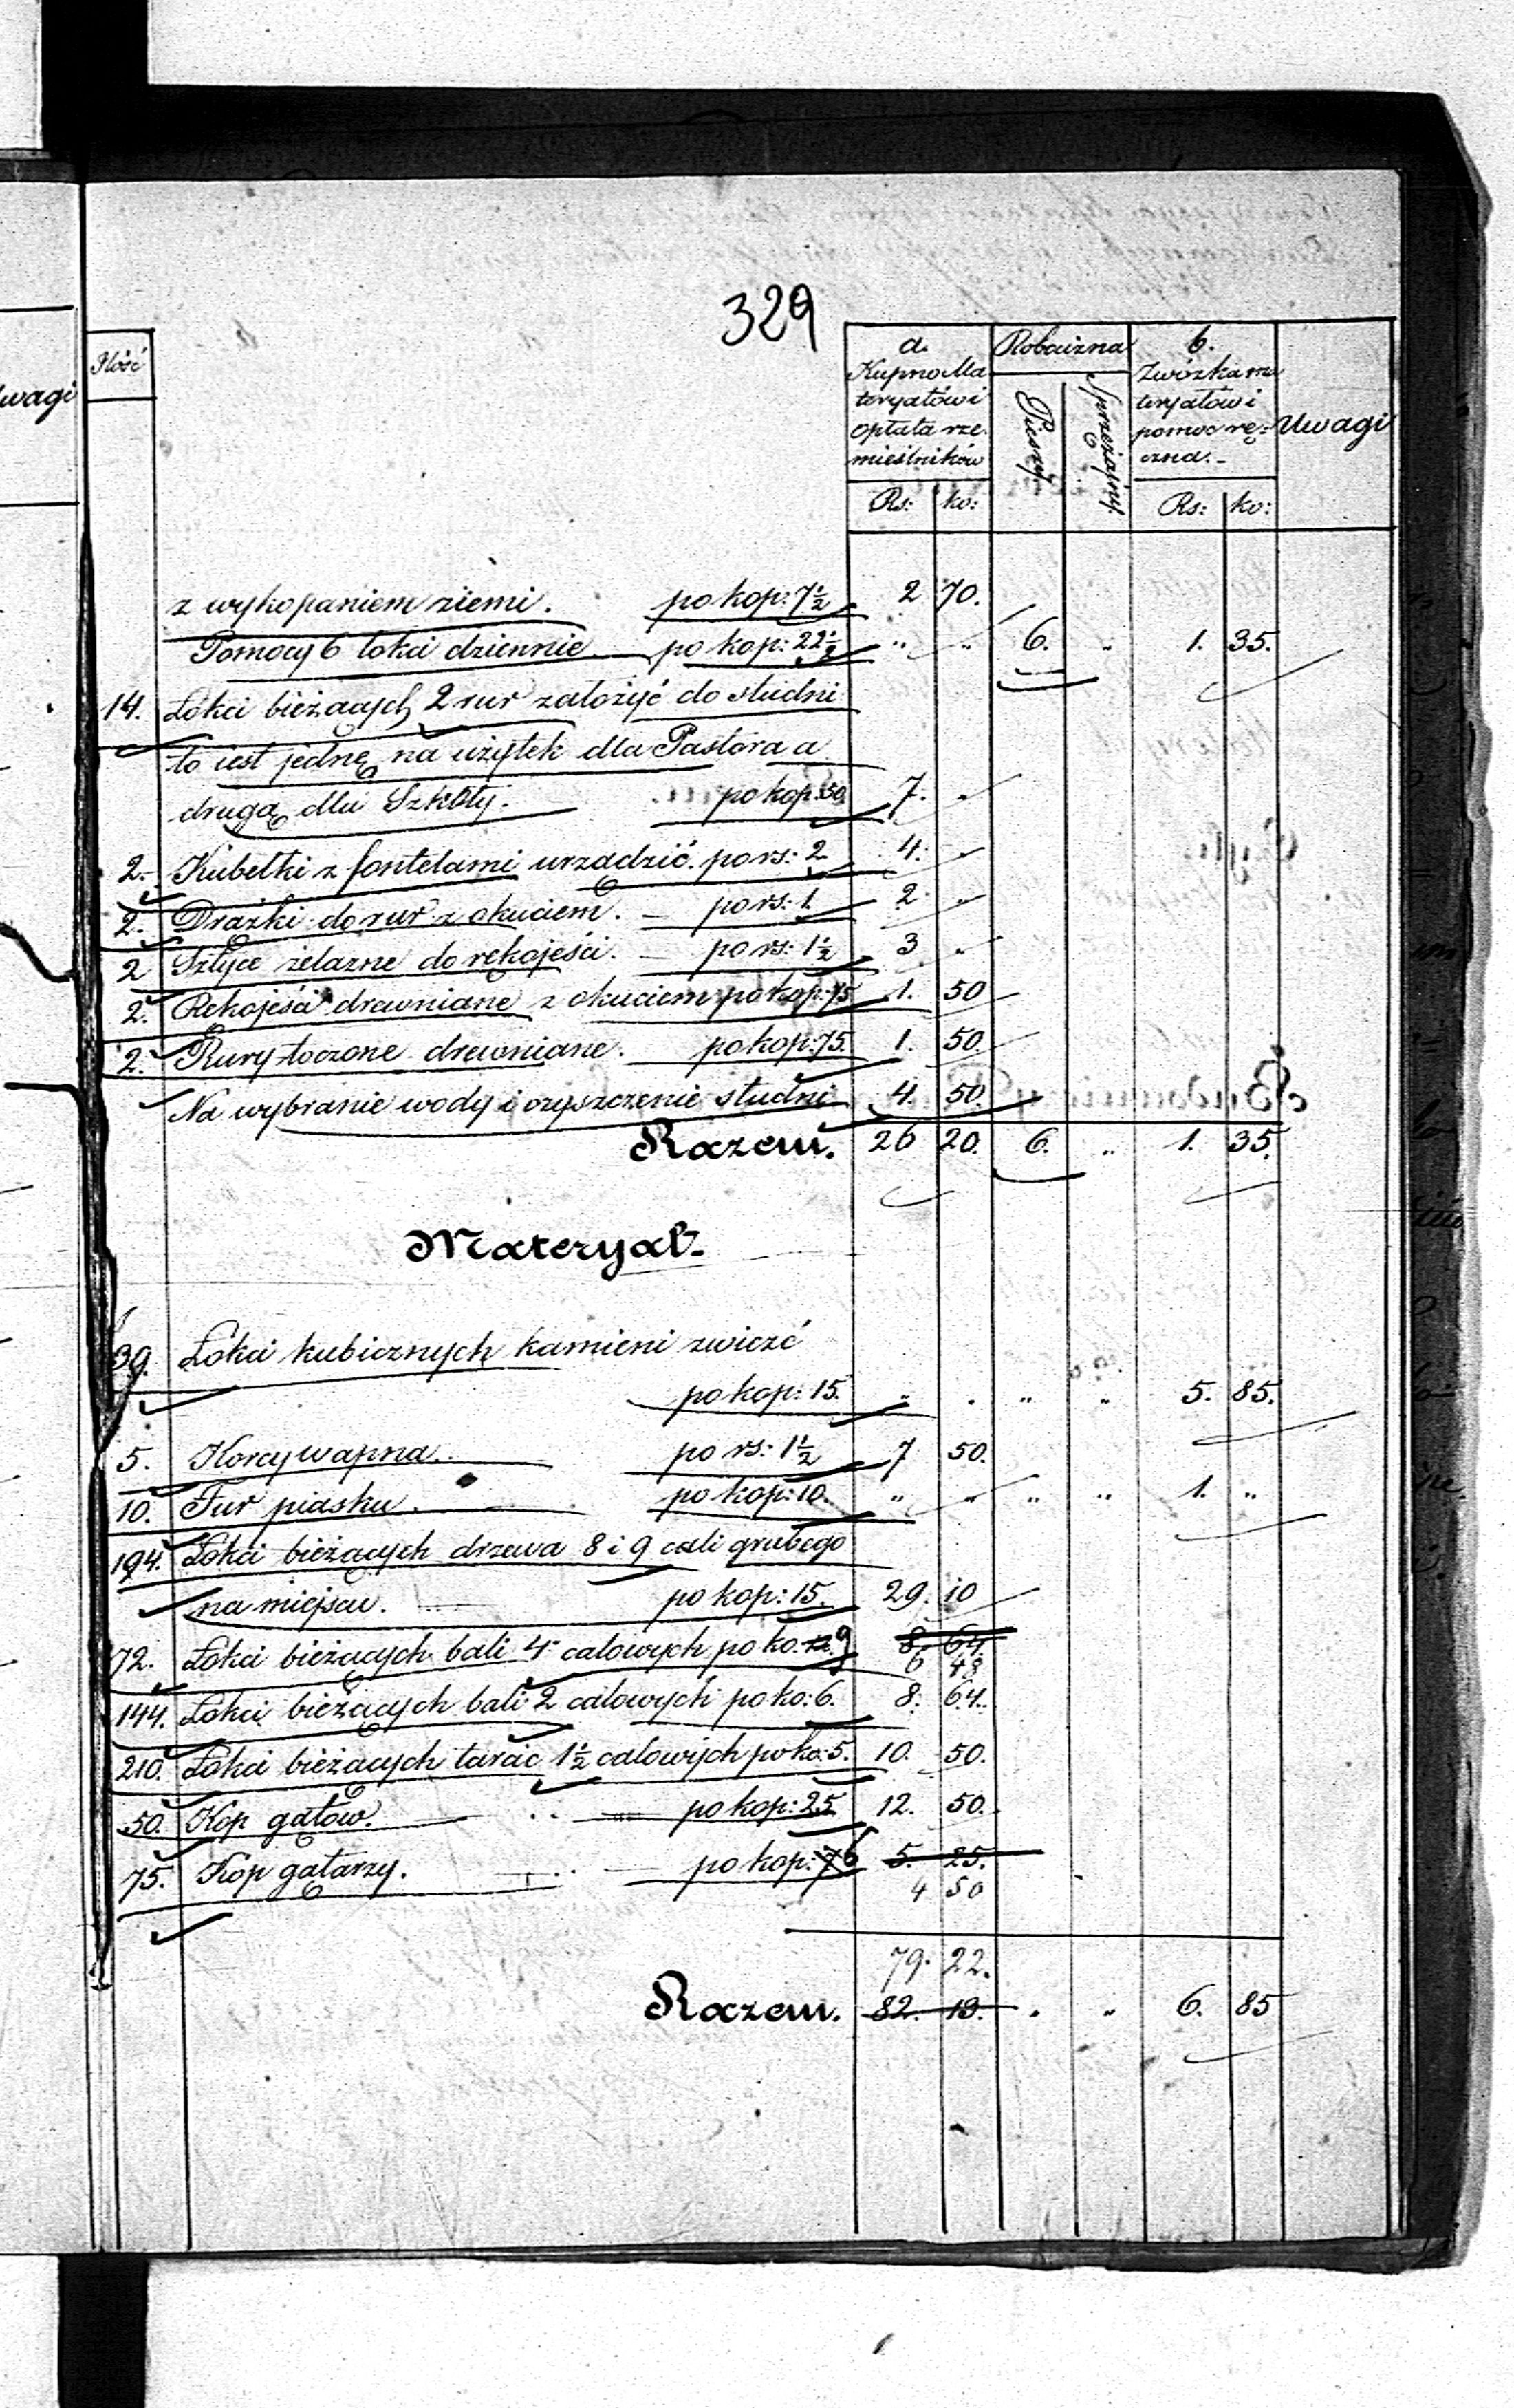 329
wagi
Ilość
a.
Kupno Ma
teryałów i
opłata rze
mieślników
Robocizna
Pieszy
Sprzężajny.
b.
Zwózka ma
teryałów i
pomoc rę=
czna.
Uwagi
Rs: ko: Rs: ko:
z wykopaniem ziemi. po kop: 7½ 2 70.
Pomocy 6 łokci dziennie po kop: 22½ " " 6. " 1. 35.
14. Łokci bieżących 2 rur założyć do studni
to iest jednę na użytek dla Pastora a
drugą dla Szkoły. po kop: 50 7. "
2. Kubełki z fontelami urządzić. po rs: 2 4. "
2. Drążki do rur z okuciem. po rs: 1 2. "
2 Sztyce żelazne do rękojeści. po rs: 1½ 3 "
2. Rękojeści drewniane z okuciem po kop: 75 1. 50
2. Rury toczone drewniane. po kop: 75. 1. 50.
Na wybranie wody i oczyszczenie studni 4. 50.
Razem. 26 20. 6. " 1. 35.
Materyał
39. Łokci kubicznych kamieni zwieźć
po kop: 15. " " " " 5. 85.
5. Korcy wapna. po rs: 1½ 7 50.
10. Fur piasku. po kop: 10. " " " " 1. "
194. Łokci bieżących drzewa 8 i 9 cali grubego
na miejscu. po kop: 15. 29. 10
72. Łokci bieżących bali 4 calowych po ko: 9 8. 64
6 48
144. Łokci bieżących bali 2 calowych po ko: 6. 8. 64.
210. Łokci bieżących tarcic 1½ calowych po ko: 5. 10. 50.
50. Kop gątów. po kop: 25 12. 50.
75. Kop gątarzy. po kop: 7 6 5. 25.
4 50
79. 22.
Razem. 82. 13. " " 6. 85